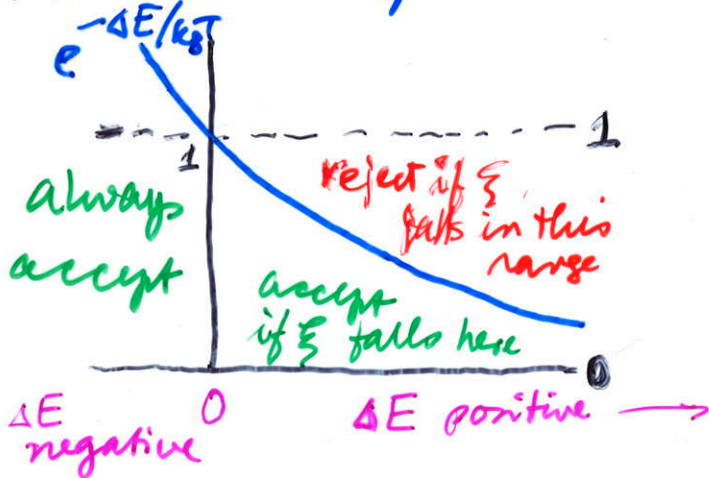 e^-ΔE/k_BT
1
1
always
accept
reject if ξ
falls in this
range
accept
if ξ falls here
0
ΔE
negative
0
ΔE positive →